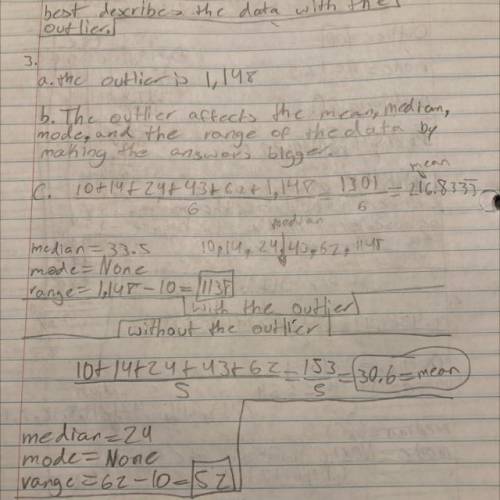 best describes the data with the
outlier.
3.
a. the outlier is 1,148
b. The outlier affects the mean, median,
mode, and the range of the data by
making the answers bigger.
mean
C. 10+14+24+43+62+1,148 = 1301 = 216.8333
6 6
median
median = 33.5 10, 14, 24, 43, 62, 1148
mode = None
range = 1,148 - 10 = 1138
with the outlier
without the outlier
10+14+24+43+62 = 153 = 30.6 = mean
5 5
median = 24
mode = None
range = 62 - 10 = 52